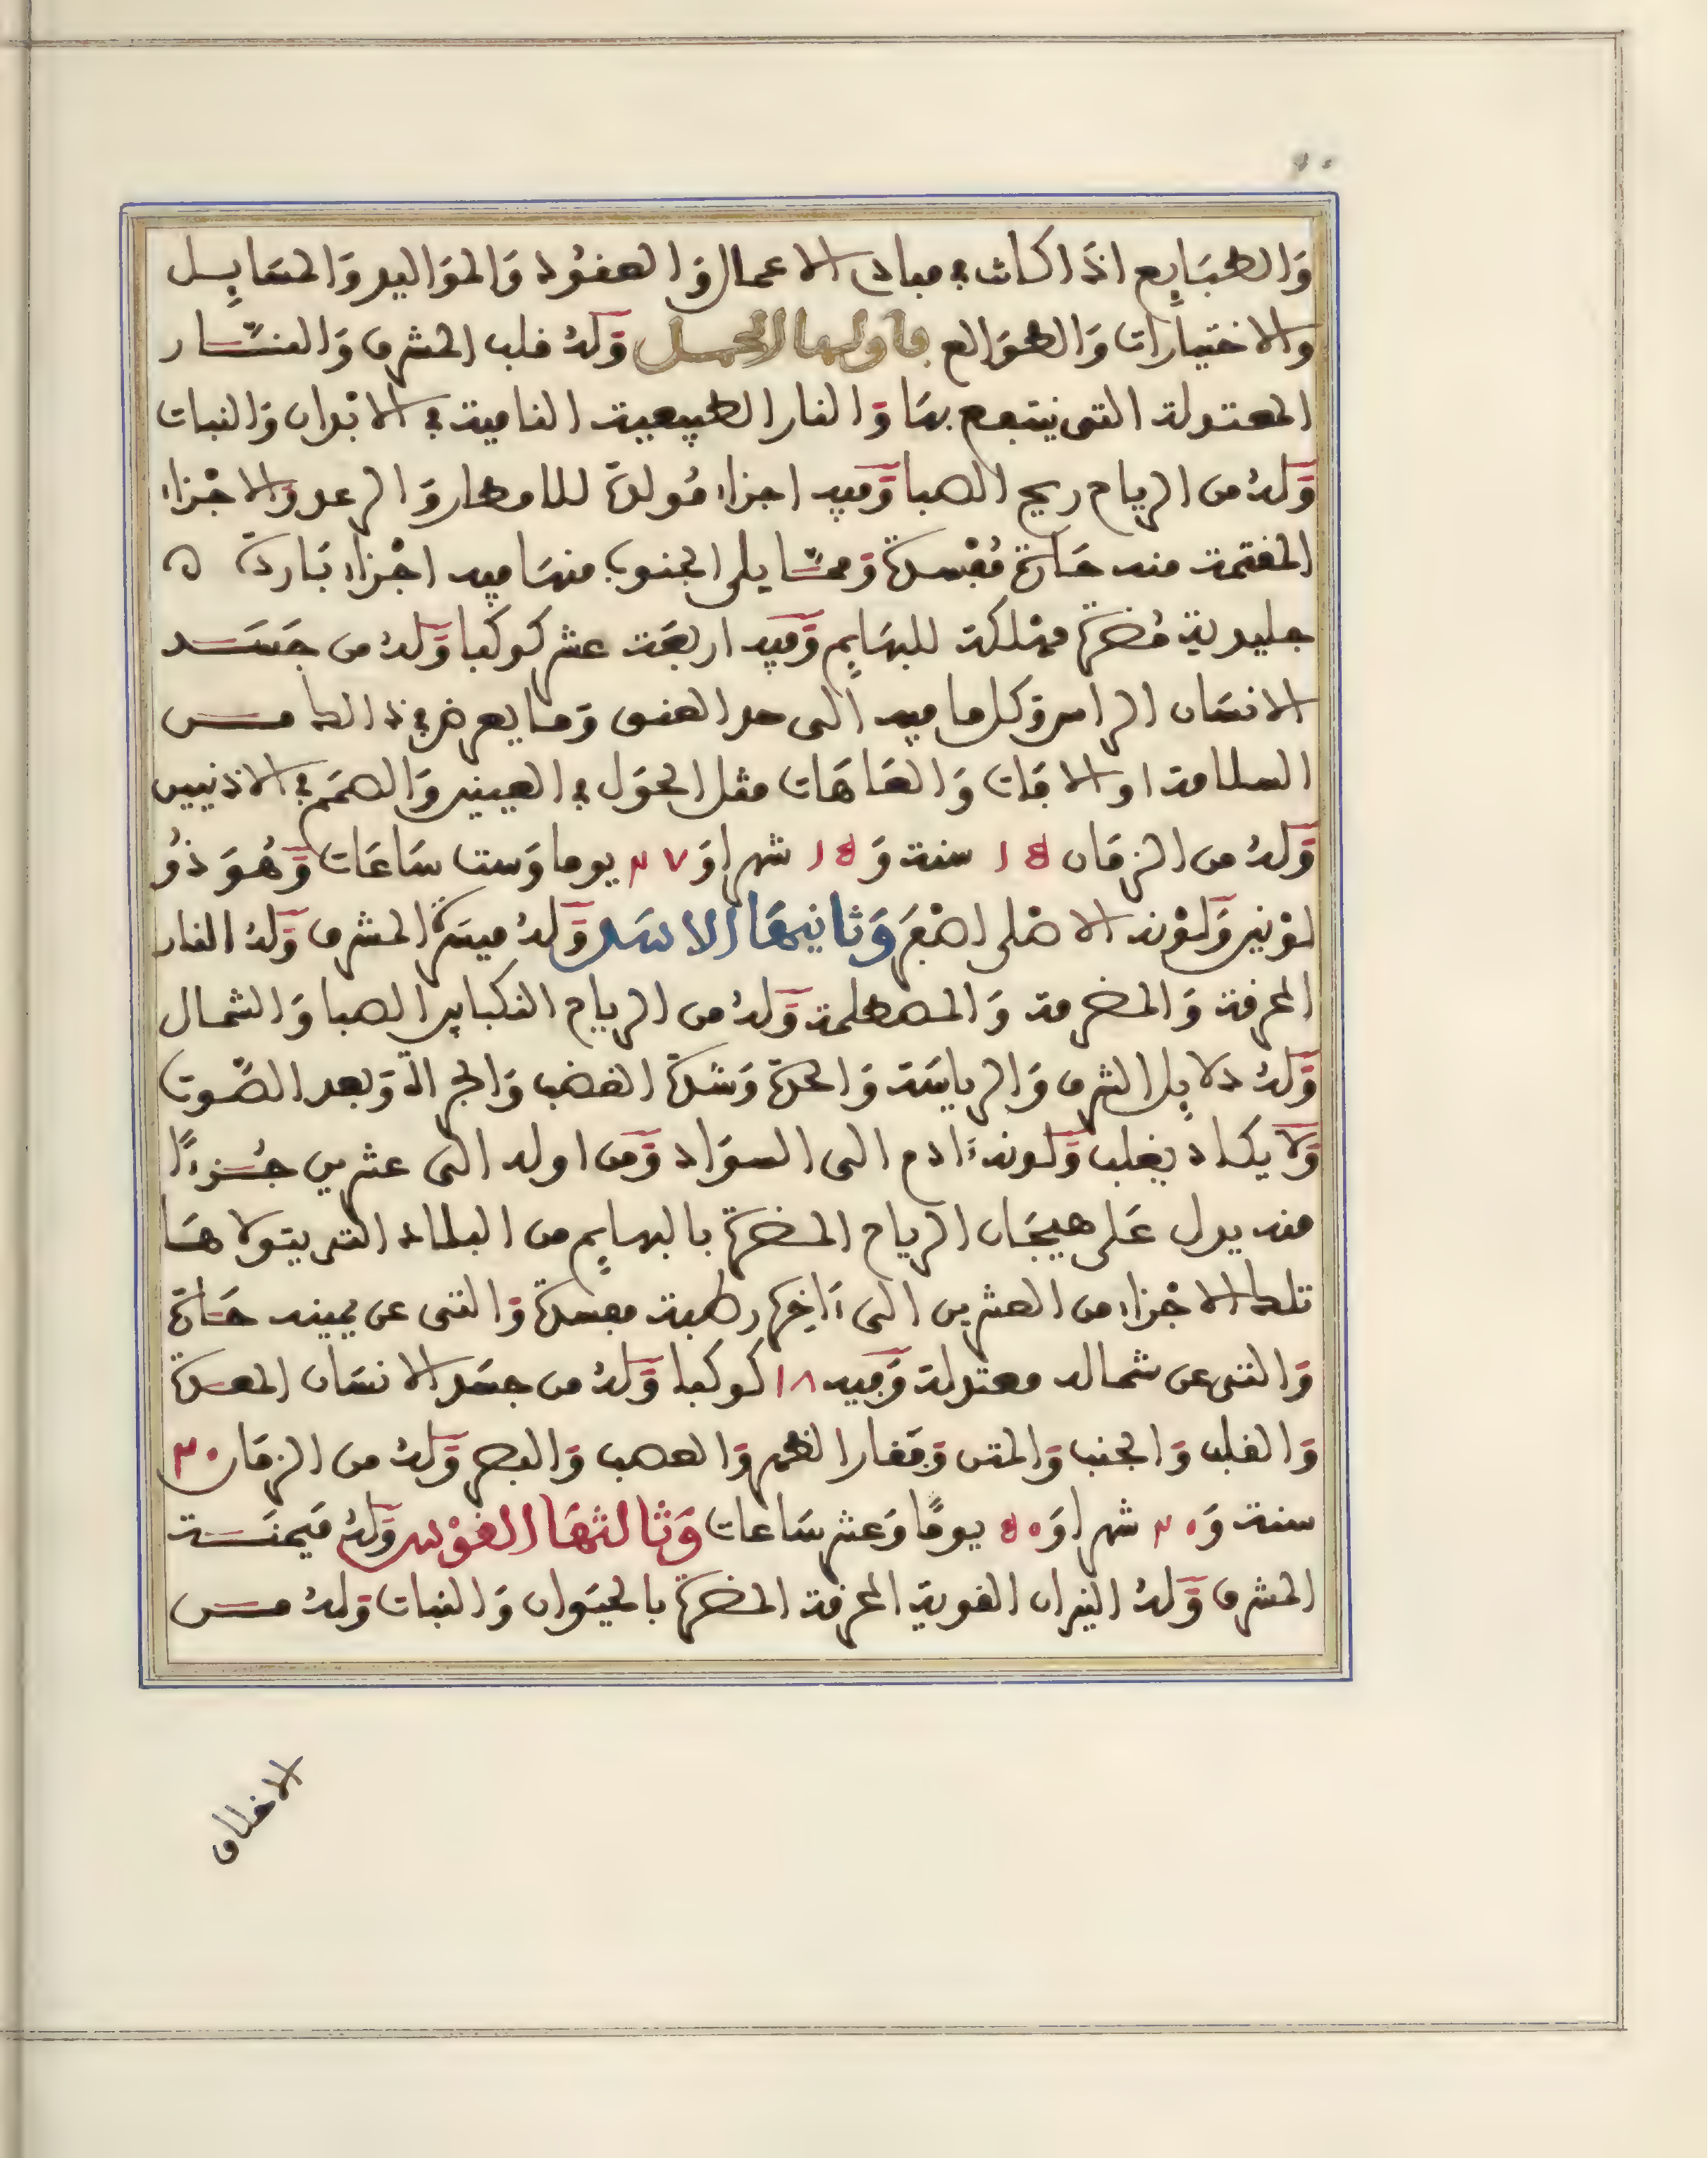 وَالطبَايِع اذا كانت في مبادى الاعمال وَالعقُود وَالموَاليد وَالمسَايِل
والاختيارات وَالطوَالع فاولها الحمل وَلهُ قلب المشرق وَالنّار
المعتدلة التى ينتفع بهَا وَالنار الطبيعية النامية في الابْدان وَالنبات
وَلهُ من الرياح ريح الصبا وَفيه اجزاء مُولدة للامطار وَالرعد وَالاجْزاء
المغتمة منه حَارة مُفْسدة وَممّا يلى الجنوب منهَا فيه اجْزاء بَاردة ه
جليدية مُضرة مهْلكة للبهَايِم وَفيه اربعَة عشر كوكبا وَلهُ من جَسَد
الانسَان الراس وَكل ما فيه الى حد العنق وَما يعرض في ذالك من
السلامة او الافات وَالعَاهَات مثل الحوَل في العينين وَالصمَم في الاذنين
وَلهُ من الزمَان ١٥ سنة وَ ١٥ شهرا وَ ٣٧ يوما وَست سَاعَات وَهُوَ ذُو
لوْنين وَلوْنه الاصْلى اصْفَر وَثانيهَا الاسَد وَلهُ ميسَرة المشرق وَلهُ النار
المحرقة وَالمضرمة وَالمصطلمة وَلهُ من الرياح النكبا بين الصبا وَالشمال
وَلهُ دلايِل الشرق وَالرياسَة وَالحدة وَشدة الغضب وَالجرالة وَبعد الصّوت
وَلا يكاد يغلب وَلونه ءادم الى السوَاد وَمن اوله الى عشرين جُزءًا
منه يدل عَلى هيجَان الرياح المضرة بالبهايِم من البلاد التى يتولاهَا
تلك الاجْزاء من العشرين الى ءاخِرَ رطبة مفسدة وَالتى عن يمينه حَارة
وَالتى عن شماله معتدلة وَفيه ١٨ كوكبا وَلهُ من جسَد الانسَان المعدة
وَالقلب وَالجنب وَالمتن وَفقار الظهر وَالعصب وَالبصر وَلهُ من الزمَان ٣٠
سنة وَ ٣٠ شهرا وَ ٥٠ يومًا وَعشر سَاعات وَثالثهَا القوْس وَلهُ مَيمنَة
المشرق وَلهُ النيران القوية المحرقة المضرة بالحيَوان وَالنبات وَلهُ من
الاخلاق